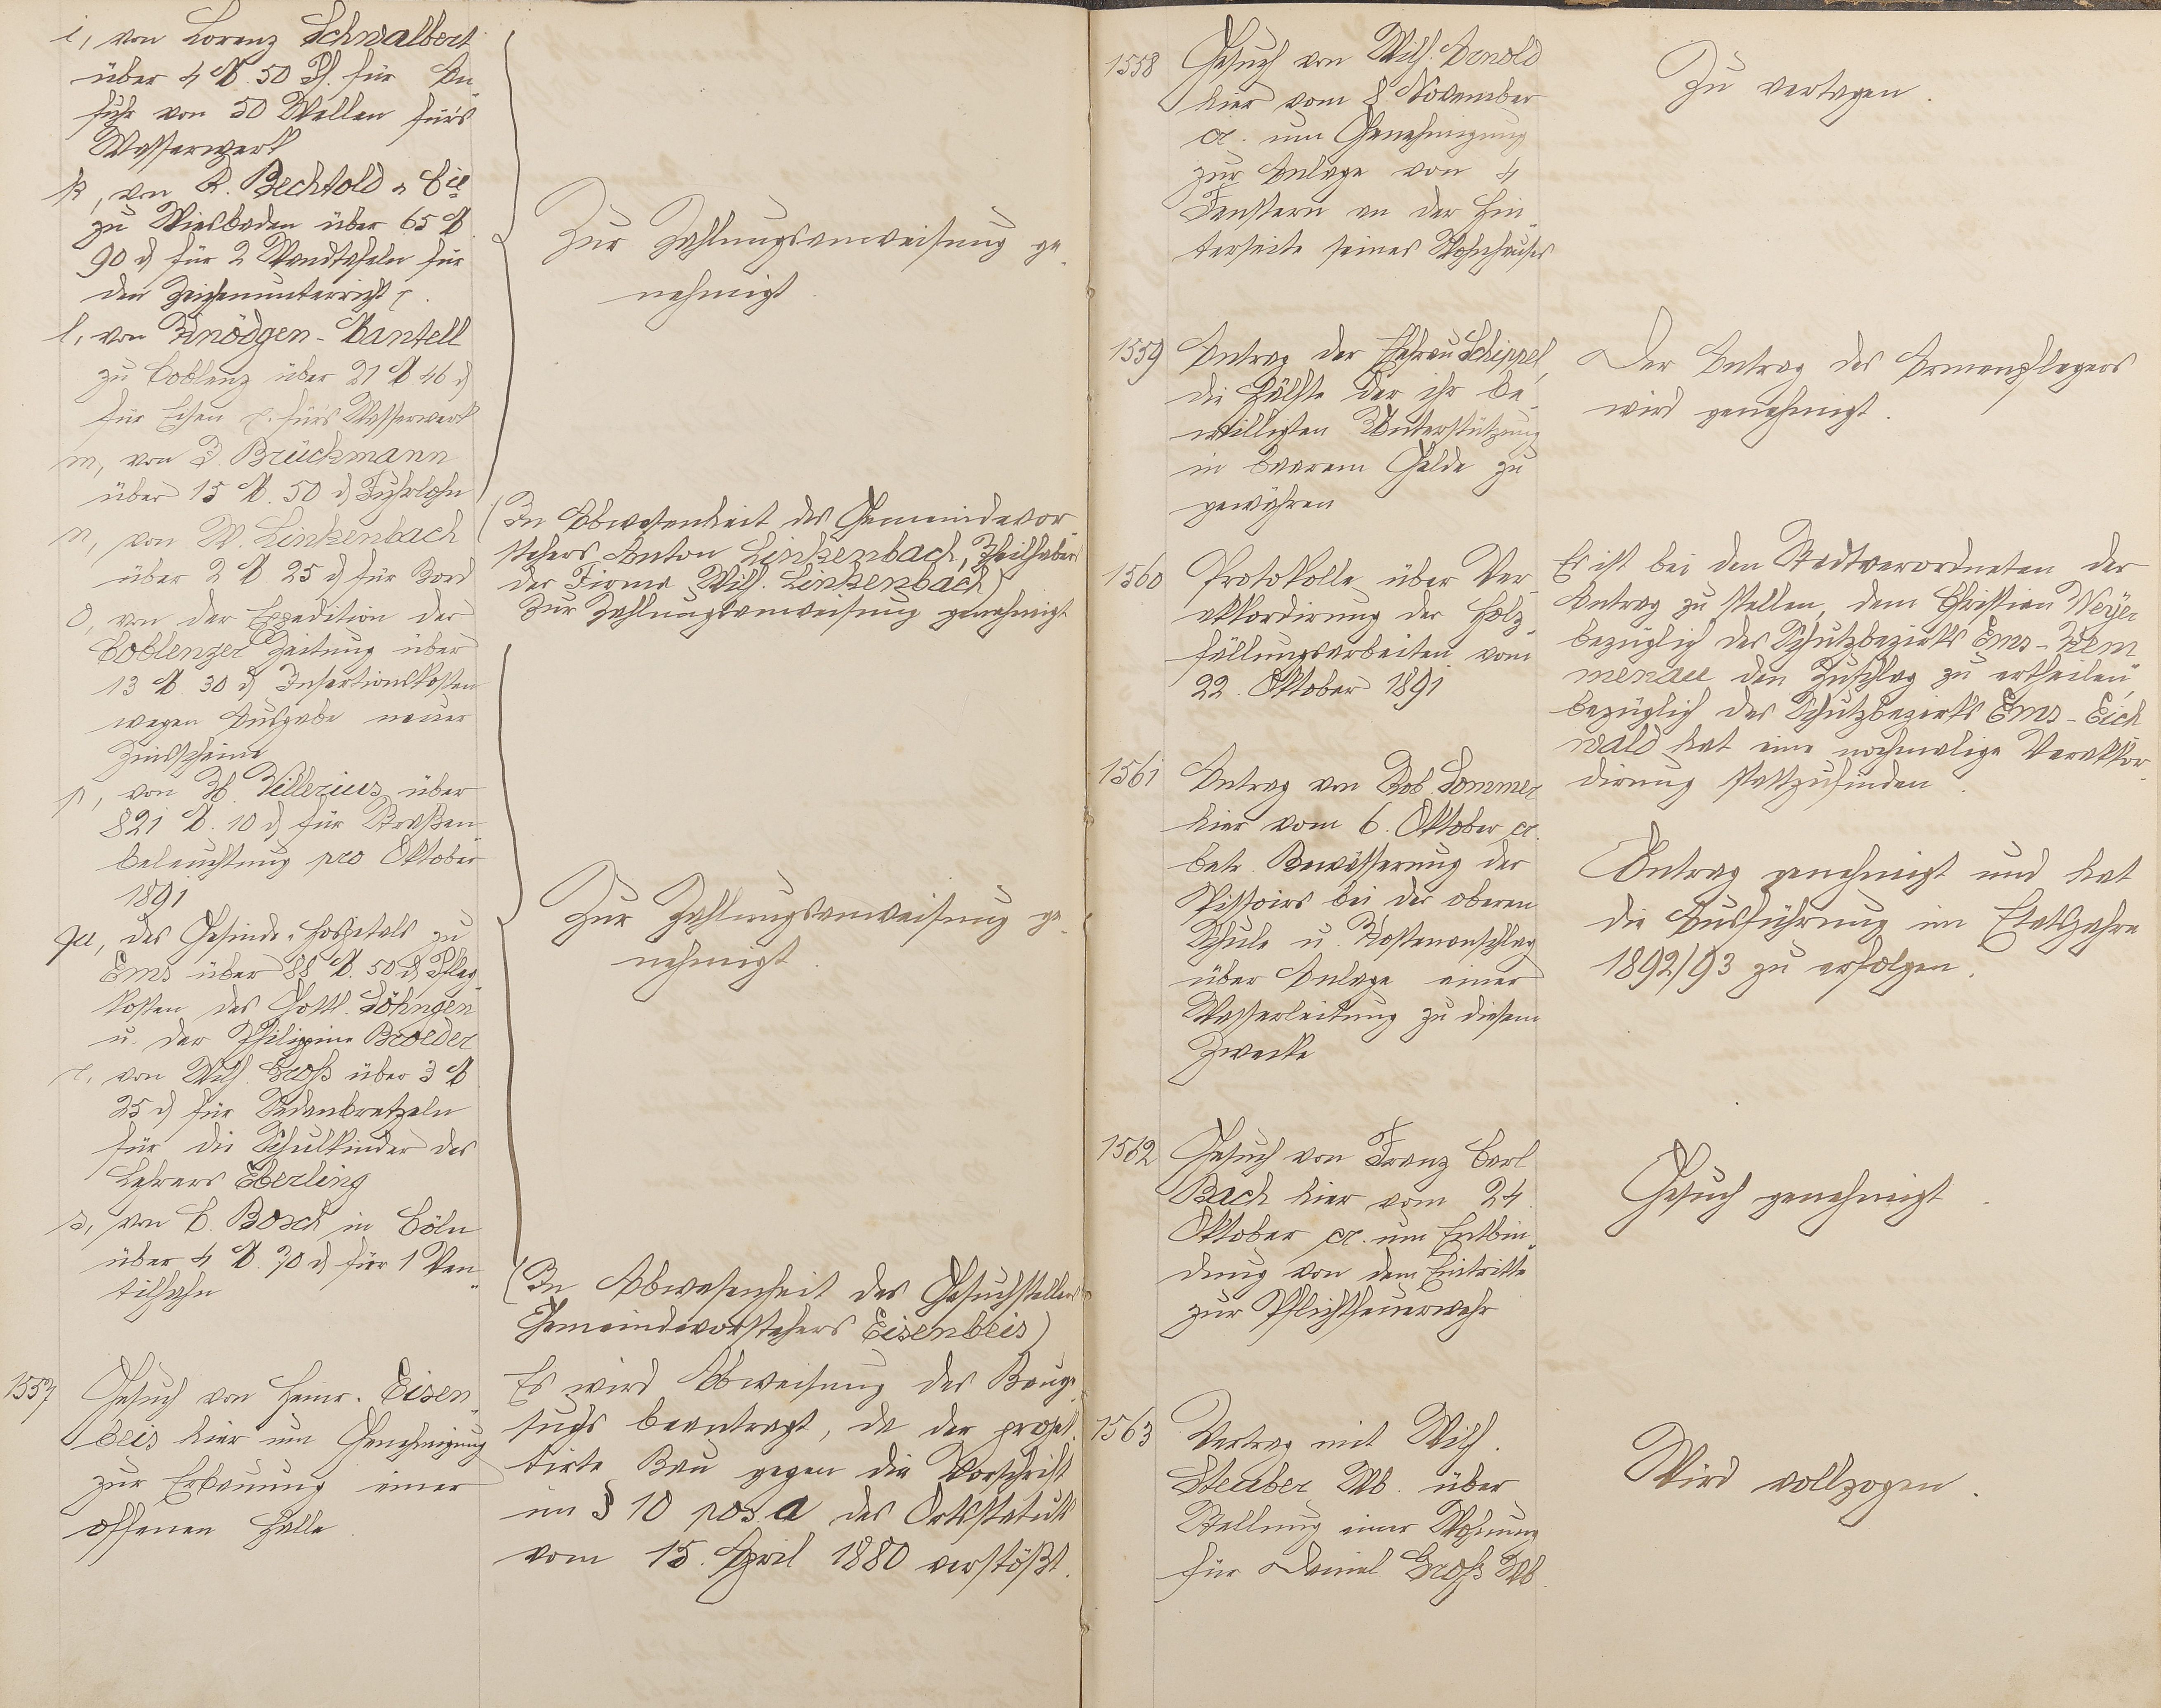 i, von Lorenz Schwalbert
über 4 M. 50 Pf. für An-
fuhr von 50 Wellen für's
Wasserwerk
k, von R. Bechtold & Cie
zu Wiesbaden über 65 M
90 d für 2 Wandtafeln für
den Zeichenunterricht
l, von Knödgen-Mantell
zu Coblenz über 21 M 46 d
für Eisen für's Wasserwerk
m, von Brückmann
über 15 M. 50 d Fuhrlohn
n, von W. Linkenbach
über 2 M 25 d für Kord
o, von der Expedition der
Coblenzer Zeitung über
13 M 30 d Insertionskosten
wegen Ausgabe neuer
Zinsscheine
p, von H. Villerius über
821 M. 10 d für Straßen
beleuchtung pro Oktober
1891
qu, des Gesinde-Hospitals zu
Ems über 88 M. 50 d Pfleg-
kosten des Gottl. Söhngen
u. der Philippine Broeder
r, von Wilh. Groß über 3 M
25 d für Sedanbretzeln
für die Schulkinder des
Lehrers Eberling
s, von C. Bosch in Cöln
über 4 M. 70 d für 1 Ven-
tilhahn
1557 Gesuch von Heinr. Eisen-
beis hier um Genehmigung
zur Erbauung einer
offenen Halle
Zur Zahlungsanweisung ge-
nehmigt.
(In Abwesenheit des Gemeindevor-
stehers Anton Linkenbach, Theilhaber
der Firma Wilh. Linkenbach)
Zur Zahlungsanweisung genehmigt
Zur Zahlungsanweisung ge-
nehmigt.
(In Abwesenheit des Gesuchstellers
Gemeindevorstehers Eisenbeis)
Es wird Abweisung des Bauge-
suchs beantragt, da der projek-
tirte Bau gegen die Vorschrift
im § 10 pos. a des Ortsstatuts
vom 15. April 1880 verstößt.
1558 Gesuch von Wilh. Arnold
hier vom 8 November
cr. um Genehmigung
zur Anlage von 4
Fenstern an der Hin-
terseite seines Wohnhauses
Zu vertagen.
1559 Antrag der Ehefrau Schippel,
die Hälfte der ihr be-
willigten Unterstützung
in baarem Gelde zu
gewähren
Der Antrag des Armenpflegers
wird genehmigt.
1560 Protokolle über Ver-
akkordirung der Holz-
fällungsarbeiten vom
22. Oktober 1891
Es ist bei den Stadtverordneten der
Antrag zu stellen, dem Christian Weyer
bezüglich des Schutzbezirks Ems-Kem
menau den Zuschlag zu ertheilen,
bezüglich des Schutzbezirks Ems-Eich
wald hat eine nochmalige Verakkor-
dirung stattzufinden.
1561 Antrag von Rob. Sommer
hier vom 6. Oktober cr.
betr. Bewässerung der
Pissoirs bei der oberen
Schule u. Kostenanschlag
über Anlage einer
Wasserleitung zu diesem
Zwecke
Antrag genehmigt und hat
die Ausführung im Etatsjahre
1892/93 zu erfolgen.
1562 Gesuch von Franz Carl
Bach hier vom 24.
Oktober cr. um Entbin-
dung von dem Eintritte
zur Pflichtfeuerwehr
Gesuch genehmigt.
1563 Vertrag mit Wilh.
Steuber Wb. über
Stellung einer Wohnung
für Daniel Groß Wb.
Wird vollzogen.